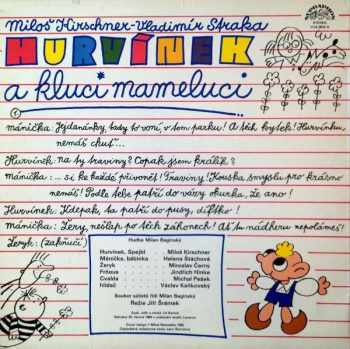 Miloš Kirschner - Vladimír Straka
HURVÍNEK
a kluci mameluci
mánička: Jejdanánky, tady to voní v tom parku! A těch kytek! Hurvínku,
nemáš chuť...
Hurvínek: na ty traviny? Copak jsem králík?
mánička: ... si ke každé přivonět! Traviny! Kouska smyslu pro krásno
nemáš! Podle tebe patří do vávy okurka, že ano!
Hurvínek: Kdepak, ta patří do pusy, dítko!
mánička: Žery, nešlap po těch záhonech! Ať tu nádheru nepolámeš!
Žeryk: (zakňučí)
Hudba Milan Baginský
Hurvínek, Spejbl Miloš Kirschner
Mánička, bábinka Helena Štáchová
Žeryk Miroslav Černý
Fritous Jindřich Hinke
Cvalda Michal Pešek
hlídač Václav Kaňkovský
Soubor sólistů řídí Milan Baginský
Režie Jiří Šrámek